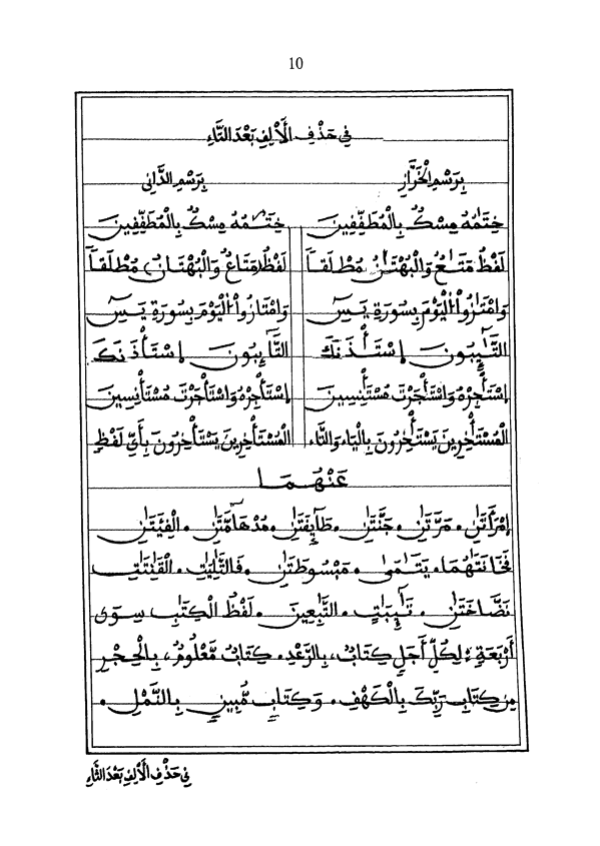 10
فِي حَذْفِ الْأَلِفِ بَعْدَ التَّاءِ
بِرَسْمِ الْخَرَّازِ بِرَسْمِ الدَّانِى
خِتَٰمُهُ مِسْكٌ بِالْمُطَفِّفِينَ خِتَٰمُهُ مِسْكٌ بِالْمُطَفِّفِينَ
لَفْظُ مَتَٰعٌ وَالْبُهْتَٰنُ مُطْلَقاً لَفْظُ (مَتَاعٌ وَالْبُهْتَانُ) مُطْلَقاً
وَامْتَٰزُواْ الْيَوْمَ بِسُورَةِ يَسٓ وَامْتَازُواْ الْيَوْمَ بِسُورَةِ يَسٓ
التَّٰٓئِبُونَ إِسْتَـْٔذَنَكَ التَّآئِبُونَ إِسْتَأْذَنَكَ
إِسْتَـْٔجِرْهُ وَاسْتَـْٔجَرْتَ مُسْتَـْٔنِسِينَ إِسْتَأْجِرْهُ وَاسْتَأْجَرْتَ مُسْتَأْنِسِينَ
الْمُسْتَـْٔخِرِينَ يَسْتَـْٔخِرُونَ بِالْيَاءِ وَالتَّاءِ الْمُسْتَأْخِرِينَ يَسْتَأْخِرُونَ بِأَيِّ لَفْظٍ
عَنْهُمَا
إِمْرَأَتَٰنِ. مَرَّتَٰنِ. جَنَّتَٰنِ. طَآئِفَتَٰنِ. مُدْهَآمَّتَٰنِ. الْفِئَتَٰنِ
فَخَانَتَٰهُمَا. يَتَٰمَىٰ. مَبْسُوطَتَٰنِ. فَالتَّٰلِيَٰتِ. الْقَٰنِتَٰتِ
نَضَّاخَتَٰنِ. تَٰٓئِبَٰتٍ. التَّٰبِعِينَ. لَفْظُ الْكِتَٰبِ سِوَى
أَرْبَعَةٍ: لِكُلِّ أَجَلٍ كِتَابٌ، بِالرَّعْدِ. كِتَابٌ مَّعْلُومٌ، بِالْحِجْرِ
مِن كِتَابِ رَبِّكَ بِالْكَهْفِ. وَكِتَابٍ مُّبِينٍ بِالنَّمْلِ.
فِي حَذْفِ الْأَلِفِ بَعْدَ الثَّاءِ